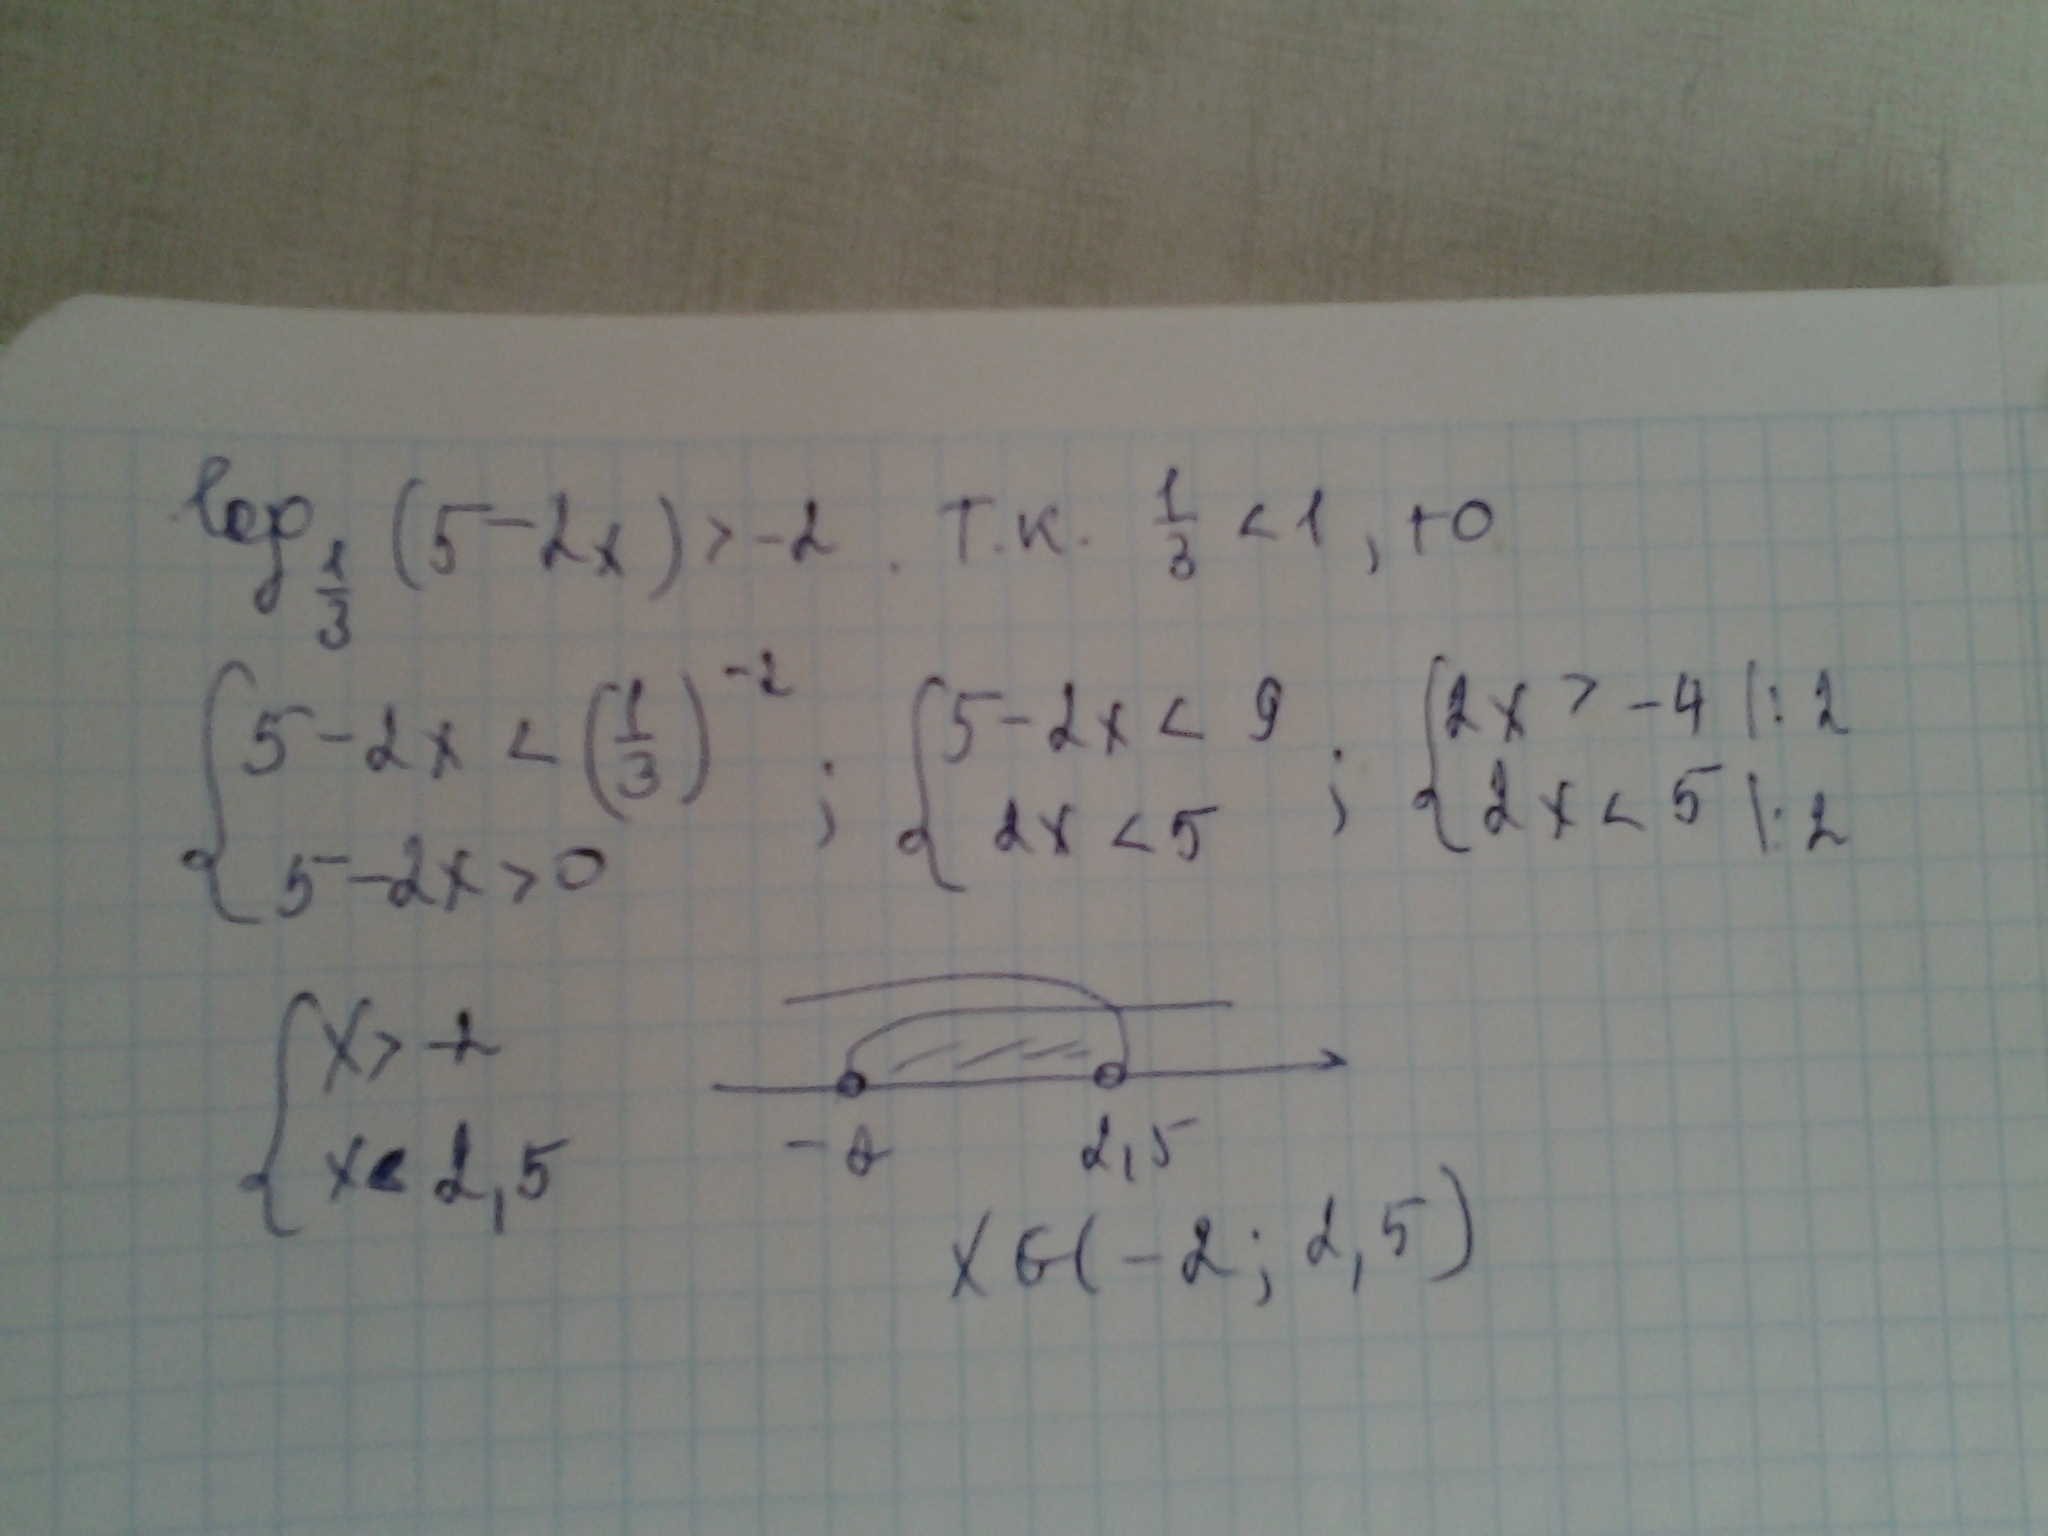 log_{1/3} (5-2x) > -2 . Т.к. 1/3 < 1, то
{5-2x < (1/3)^{-2} ; {5-2x < 9 ; {2x > -4 |:2
5-2x > 0 2x < 5 2x < 5 |:2
{x > -2
x < 2,5
-2 2,5
x ∈ (-2; 2,5)